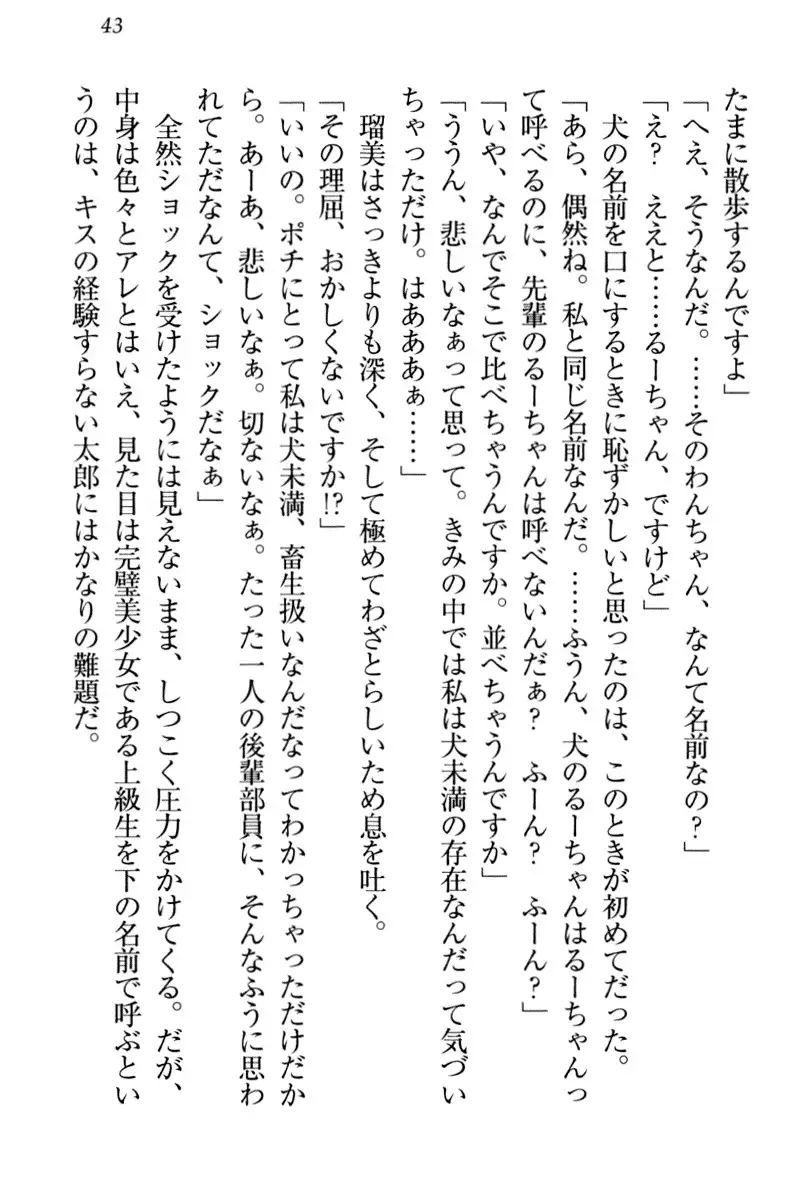 43
たまに散歩するんですよ」
「へえ、そうなんだ。……そのわんちゃん、なんて名前なの？」
「え？　ええと……るーちゃん、ですけど」
　犬の名前を口にするときに恥ずかしいと思ったのは、このときが初めてだった。
「あら、偶然ね。私と同じ名前なんだ。……ふうん、犬のるーちゃんはるーちゃんっ
て呼べるのに、先輩のるーちゃんは呼べないんだぁ？　ふーん？　ふーん？」
「いや、なんでそこで比べちゃうんですか。並べちゃうんですか」
「ううん、悲しいなぁって思って。きみの中では私は犬未満の存在なんだって気づい
ちゃっただけ。はあああぁ……」
　瑠美はさっきよりも深く、そして極めてわざとらしいため息を吐く。
「その理屈、おかしくないですか!?」
「いいの。ポチにとって私は犬未満、畜生扱いなんだなってわかっちゃっただけだか
ら。あーあ、悲しいなぁ。切ないなぁ。たった一人の後輩部員に、そんなふうに思わ
れてただなんて、ショックだなぁ」
　全然ショックを受けたようには見えないまま、しつこく圧力をかけてくる。だが、
中身は色々とアレとはいえ、見た目は完璧美少女である上級生を下の名前で呼ぶとい
うのは、キスの経験すらない太郎にはかなりの難題だ。